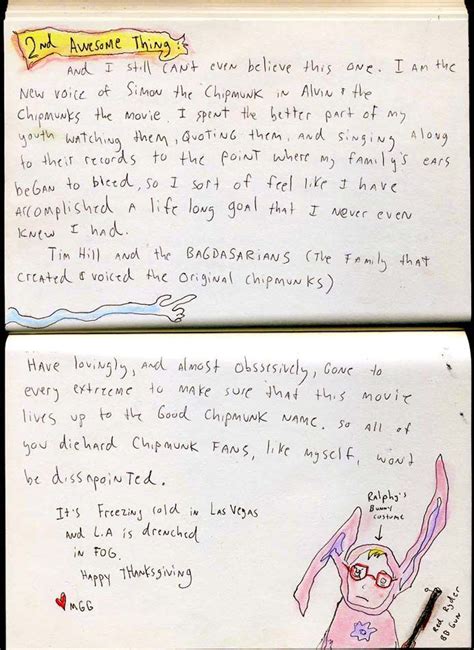 2nd Awesome Thing:
And I still CAN't even believe this one. I am the
New voice of Simon the Chipmunk in Alvin & the
Chipmunks the movie. I spent the better part of my
youth watching them, Quoting them, and singing along
to their records to the point where my family's ears
began to bleed, so I sort of feel like I have
Accomplished A life long goal that I never even
knew I had.
Tim Hill and the BAGDASARIANS (the Family that
created & voiced the Original Chipmunks)
Have lovingly, and almost obssesively, Gone to
every extreme to make sure that this movie
lives up to the Good Chipmunk Name. so all of
you diehard Chipmunk FANS, like myself, won't
be dissapointed.
Ralphy's
Bunny
Custume
It's Freezing cold in Las Vegas
and L.A is drenched
in FOG.
Happy THANKsgiving
MGG
Red Ryder
BB Gun